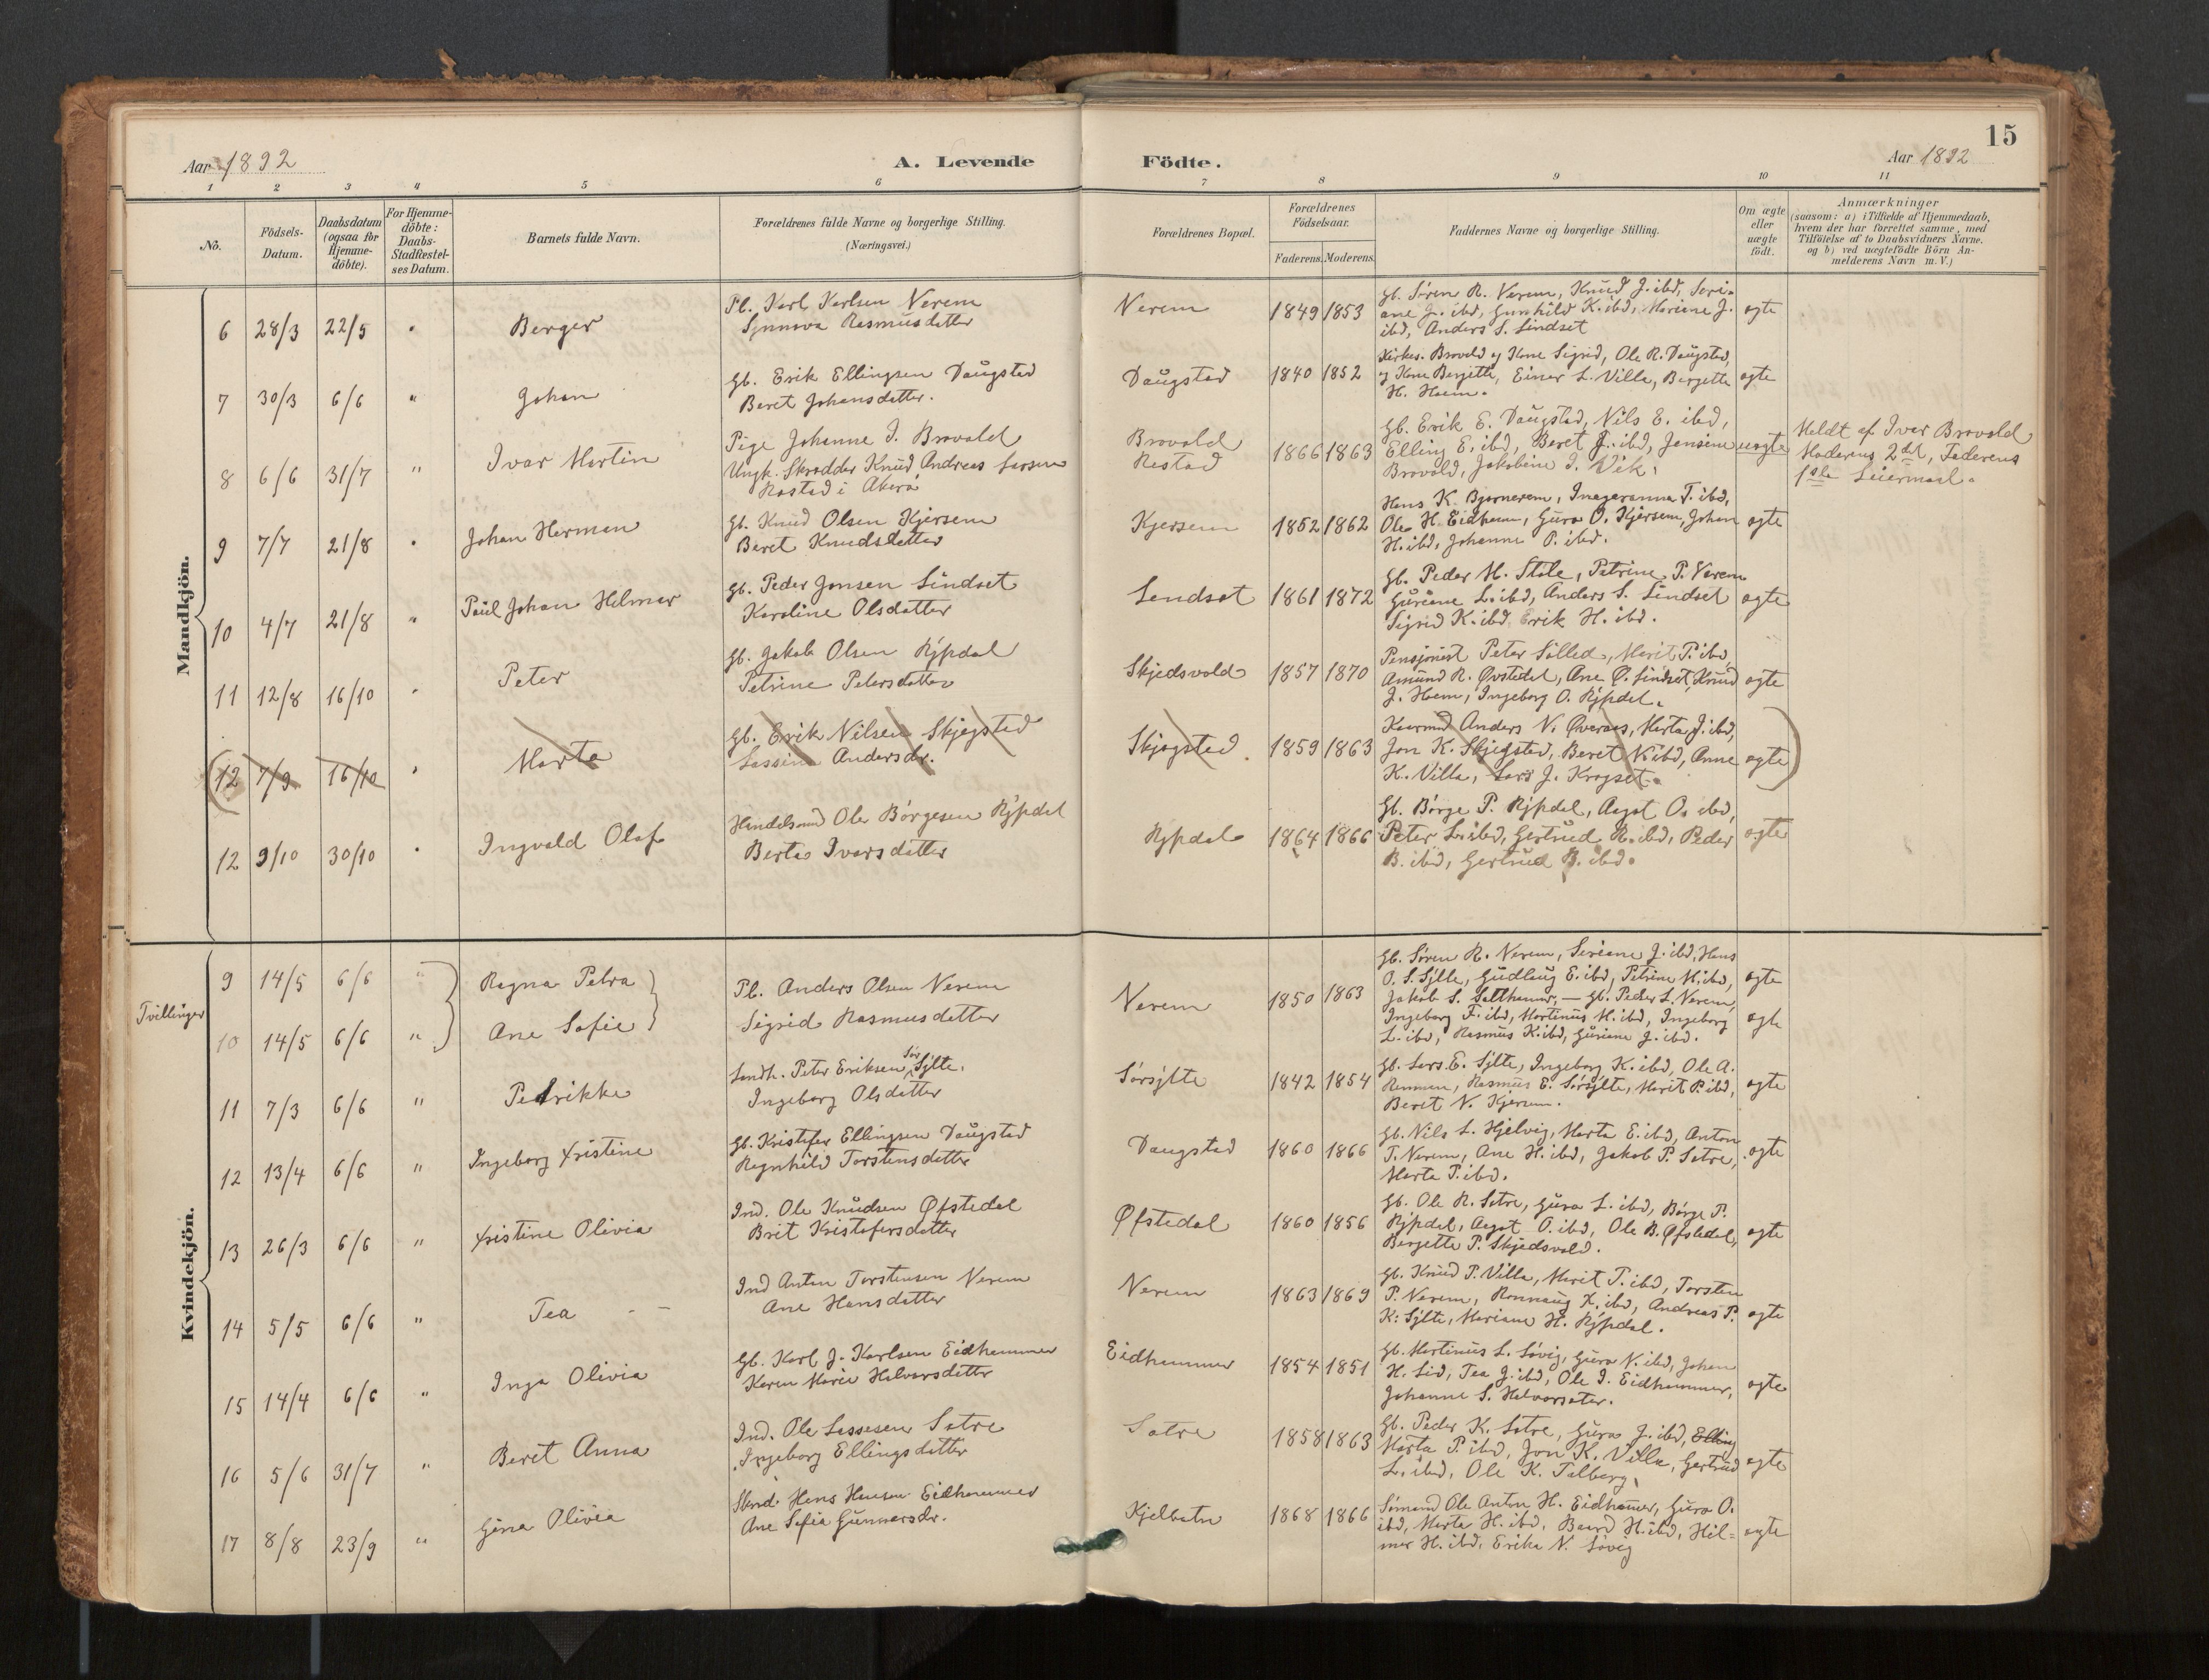 15
Aar 1892
A. Levende
Födte.
Aar 1892
1 2 3 4 5 6 7 8 9 10 11
No.
Födsels-Datum.
Daabsdatum (ogsaa for Hjemme-döbte).
For Hjemme-döbte: Daabs-Stadfæstel-ses Datum.
Barnets fulde Navn.
Forældrenes fulde Navne og borgerlige Stilling.
(Næringsvei.)
Forældrenes Bopæl.
Forældrenes Födselsaar.
Faderens. Moderens.
Faddernes Navne og borgerlige Stilling.
Om ægte eller uægte födt.
Anmærkninger
(saasom: a) i Tilfælde af Hjemmedaab,
hvem der har forrettet samme, med
Tilföielse af to Daabsvidners Navne.
og b) ved uægtefödte Börn An-
melderens Navn m. V.)
Mandkjön.
6 28/3 22/5 " Berger
Pl. Karl Karlsen Nerem
Synnova Rasmusdatter
Nerem 1849 1853
Gb. Sören R. Nerem, Knud J. ibd, Seri-
ane J. ibd, Gunhild K. ibd, Mariane J.
ibd, Anders S. Lindset
ægte
7 30/3 6/6 " Johan
Gb. Erik Ellingsen Daugstad
Beret Johansdatter.
Daugstad 1840 1852
Kirkes. Brovold og Kone Sigrid, Ole R. Daugstad,
og Kone Bergitte, Einar L. Villa, Bergitte
H. Hoem.
ægte
8 6/6 31/7 " Ivar Martin
Pige Johanne I. Brovold
Ungk. Skrædder Knud Andreas Larsen
Rastad i Akerø
Brovold
Restad
1866 1863
Gb. Erik E. Daugstad, Nils E. ibd,
Elling E. ibd, Beret J. ibd, Jensine
Brovold, Jakobine I. Vik.
uægte
Meldt af Ivar Brovold
Moderens 2det, Faderens
1ste Leiermaal.
9 7/7 21/8 " Johan Herman
Gb. Knud Olsen Kjersem
Beret Knudsdatter
Kjersem 1852 1862
Hans K. Bjørnerem, Inageranna T. ibd,
Ole H. Eidhamn, Guro O. Kjersem, Johan
H. ibd, Johanne P. ibd.
ægte
10 4/7 21/8 " Paul Johan Helmer
Gb. Peder Jonsen Lindset
Karoline Olsdatter
Lendset 1861 1872
Gb. Peder M. Stole, Petrine P. Nerem
Guriane L. ibd, Anders S. Lindset
Sigrid K. ibd Erik H. ibd.
ægte
11 12/8 16/10 " Peter
Gb. Jakob Olsen Rypdal
Petrine Petersdatter
Skjedsvold 1857 1870
Pensjonist Peter Solled, Marit P. ibd,
Amund R. Øvstedal, Ane O. Lindset, Knud
J. Hoem, Ingeborg O. Rypdal.
ægte
(12 7/9 16/10 " Marta
Gb. Erik Nilsen Skjegstad
Lassine Andersdr.
Skjegstad. 1859 1863
Kaarmd Anders N. Øveraas, Marta J. ibd,
Jon K. Skjegstad, Beret N. ibd, Anne
K. Villa, Lars J. Kragset.
ægte)
12 9/10 30/10 " Ingvald Olaf
Handelsmd Ole Börgesen Rypdal
Berta Ivarsdatter
Rypdal 1864 1866
Gb. Börge P. Rypdal, Aagot O. ibd,
Peter L. ibd, Gertrud R. ibd, Peder
B. ibd, Gertrud B. ibd.
ægte
Kvindekjön.
Tvillinger
9 14/5 6/6 " Ragna Petra
10 14/5 6/6 " Ane Sofie
Pl. Anders Olsen Nerem
Sigrid Rasmusdatter
Nerem 1850 1863
Gb. Søren R. Nerem, Seriane J. ibd, Hans
O. S. Sylte, Gudlaug E. ibd, Petrine N. ibd,
Jakob S. Salthamer, — Gb. Peder L. Nerem,
Ingeborg T. ibd, Martinus M. ibd, Ingeborg
L. ibd, Rasmus K. ibd, Guriane J. ibd.
ægte
ægte
11 7/3 6/6 " Pedrikke
Landh. Peter Eriksen Sør Sylte.
Ingeborg Olsdatter
Sørsylte 1842 1854
Gb. Lars E. Sylte, Ingeborg K. ibd, Ole A.
Remmen, Rasmus E. Sørsylte, Marit P. ibd,
Beret N. Kjersem.
ægte
12 13/4 6/6 " Ingeborg Kristine
Gb. Kristofer Ellingsen Daugstad
Ragnhild Torstensdatter
Daugstad 1860 1866
Gb. Nils L. Hjelvig, Marta E. ibd, Anton
T. Nerem, Ane H. ibd, Jakob P. Satre,
Marta P. ibd.
ægte
13 26/3 6/6 " Kristine Olivia
Ind. Ole Knudsen Øfstedal
Brit Kristofersdatter
Øfstedal 1860 1856
Gb. Ole R. Satre, Guro L. ibd, Börge P.
Rypdal, Aagot O. ibd, Ole B. Øfstedal,
Bergette P. Skjedsvold.
ægte
14 5/5 6/6 " Tea
Ind Anton Torstensen Nerem
Ane Hansdatter
Nerem 1863 1869
Gb. Knud P. Villa, Marit T. ibd, Torsten
P. Nerem, Rønnaug K. ibd, Andreas P.
K. Sylte, Mariane H. Rypdal.
ægte
15 14/4 6/6 " Inga Olivia
Gb. Karl J. Karlsen Eidhammer
Karen Marie Halvorsdatter
Eidhammer 1854 1851
Gb. Martinus L. Søvig, Guro N. ibd, Johan
H. Lid, Tea J. ibd, Ole I. Eidhammer,
Johanne S. Halvorsæter.
ægte
16 5/6 31/7 " Beret Anna
Ind. Ole Lassesen Satre
Ingeborg Ellingsdatter
Satre 1858 1863
Gb. Peder K. Satre, Guro J. ibd, Elling
Marta P. ibd, Jon K. Villa, Gertrud
L. ibd, Ole K. Talberg.
ægte
17 8/8 23/9 " Gina Olivia
Skrd. Hans Hansen Eidhammer
Ane Sofia Gunnarsdr.
Kjelbotn 1868 1866
Sømand Ole Anton H. Eidhamer, Guro O.
ibd, Marta H. ibd, Baard H. ibd, Hil-
mar H. ibd, Erika N. Søvig
ægte